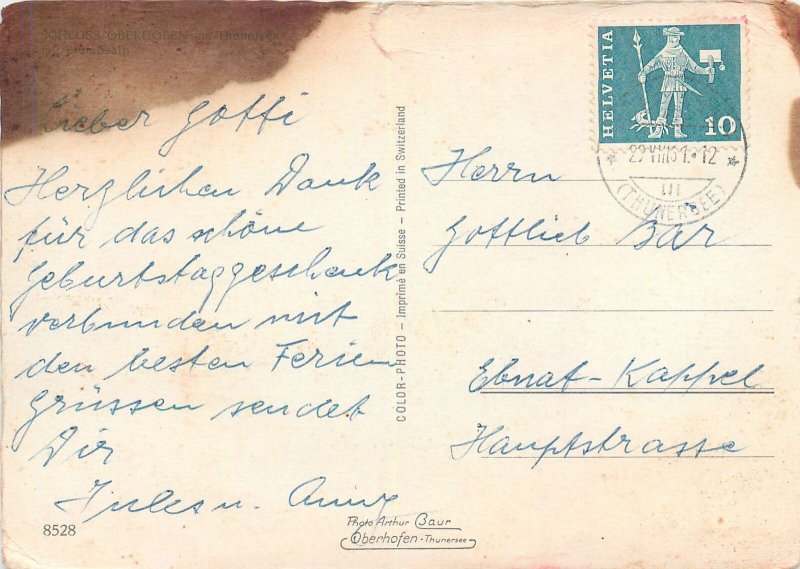 SCHLOSS OBERHOFEN am Thunersee
Lieber Gotti
Herzlichen Dank
für das schöne
Geburtstaggeschenk
verbunden mit
den besten Ferien
Grüssen sendet
Dir
Jules u.
8528
COLOR-PHOTO – Imprimé en Suisse – Printed in Switzerland
Photo Arthur Baur
Oberhofen-Thunersee
HELVETIA
10
(THUNERSEE)
Herrn
Gottlieb Bär
Ebnat-Kappel
Hauptstrasse